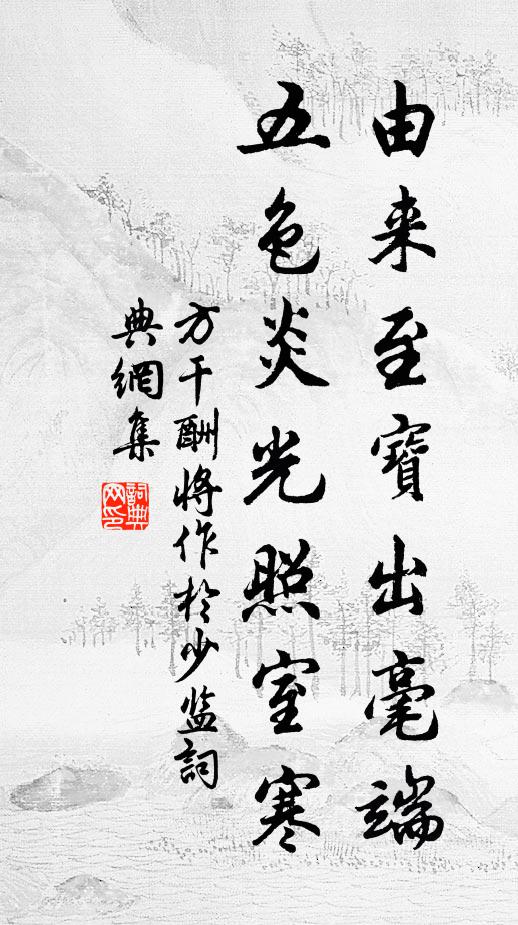 由来至寶出毫端
五色炎光照室寒
方干酬將作於少监詞
典網集
詞典网印